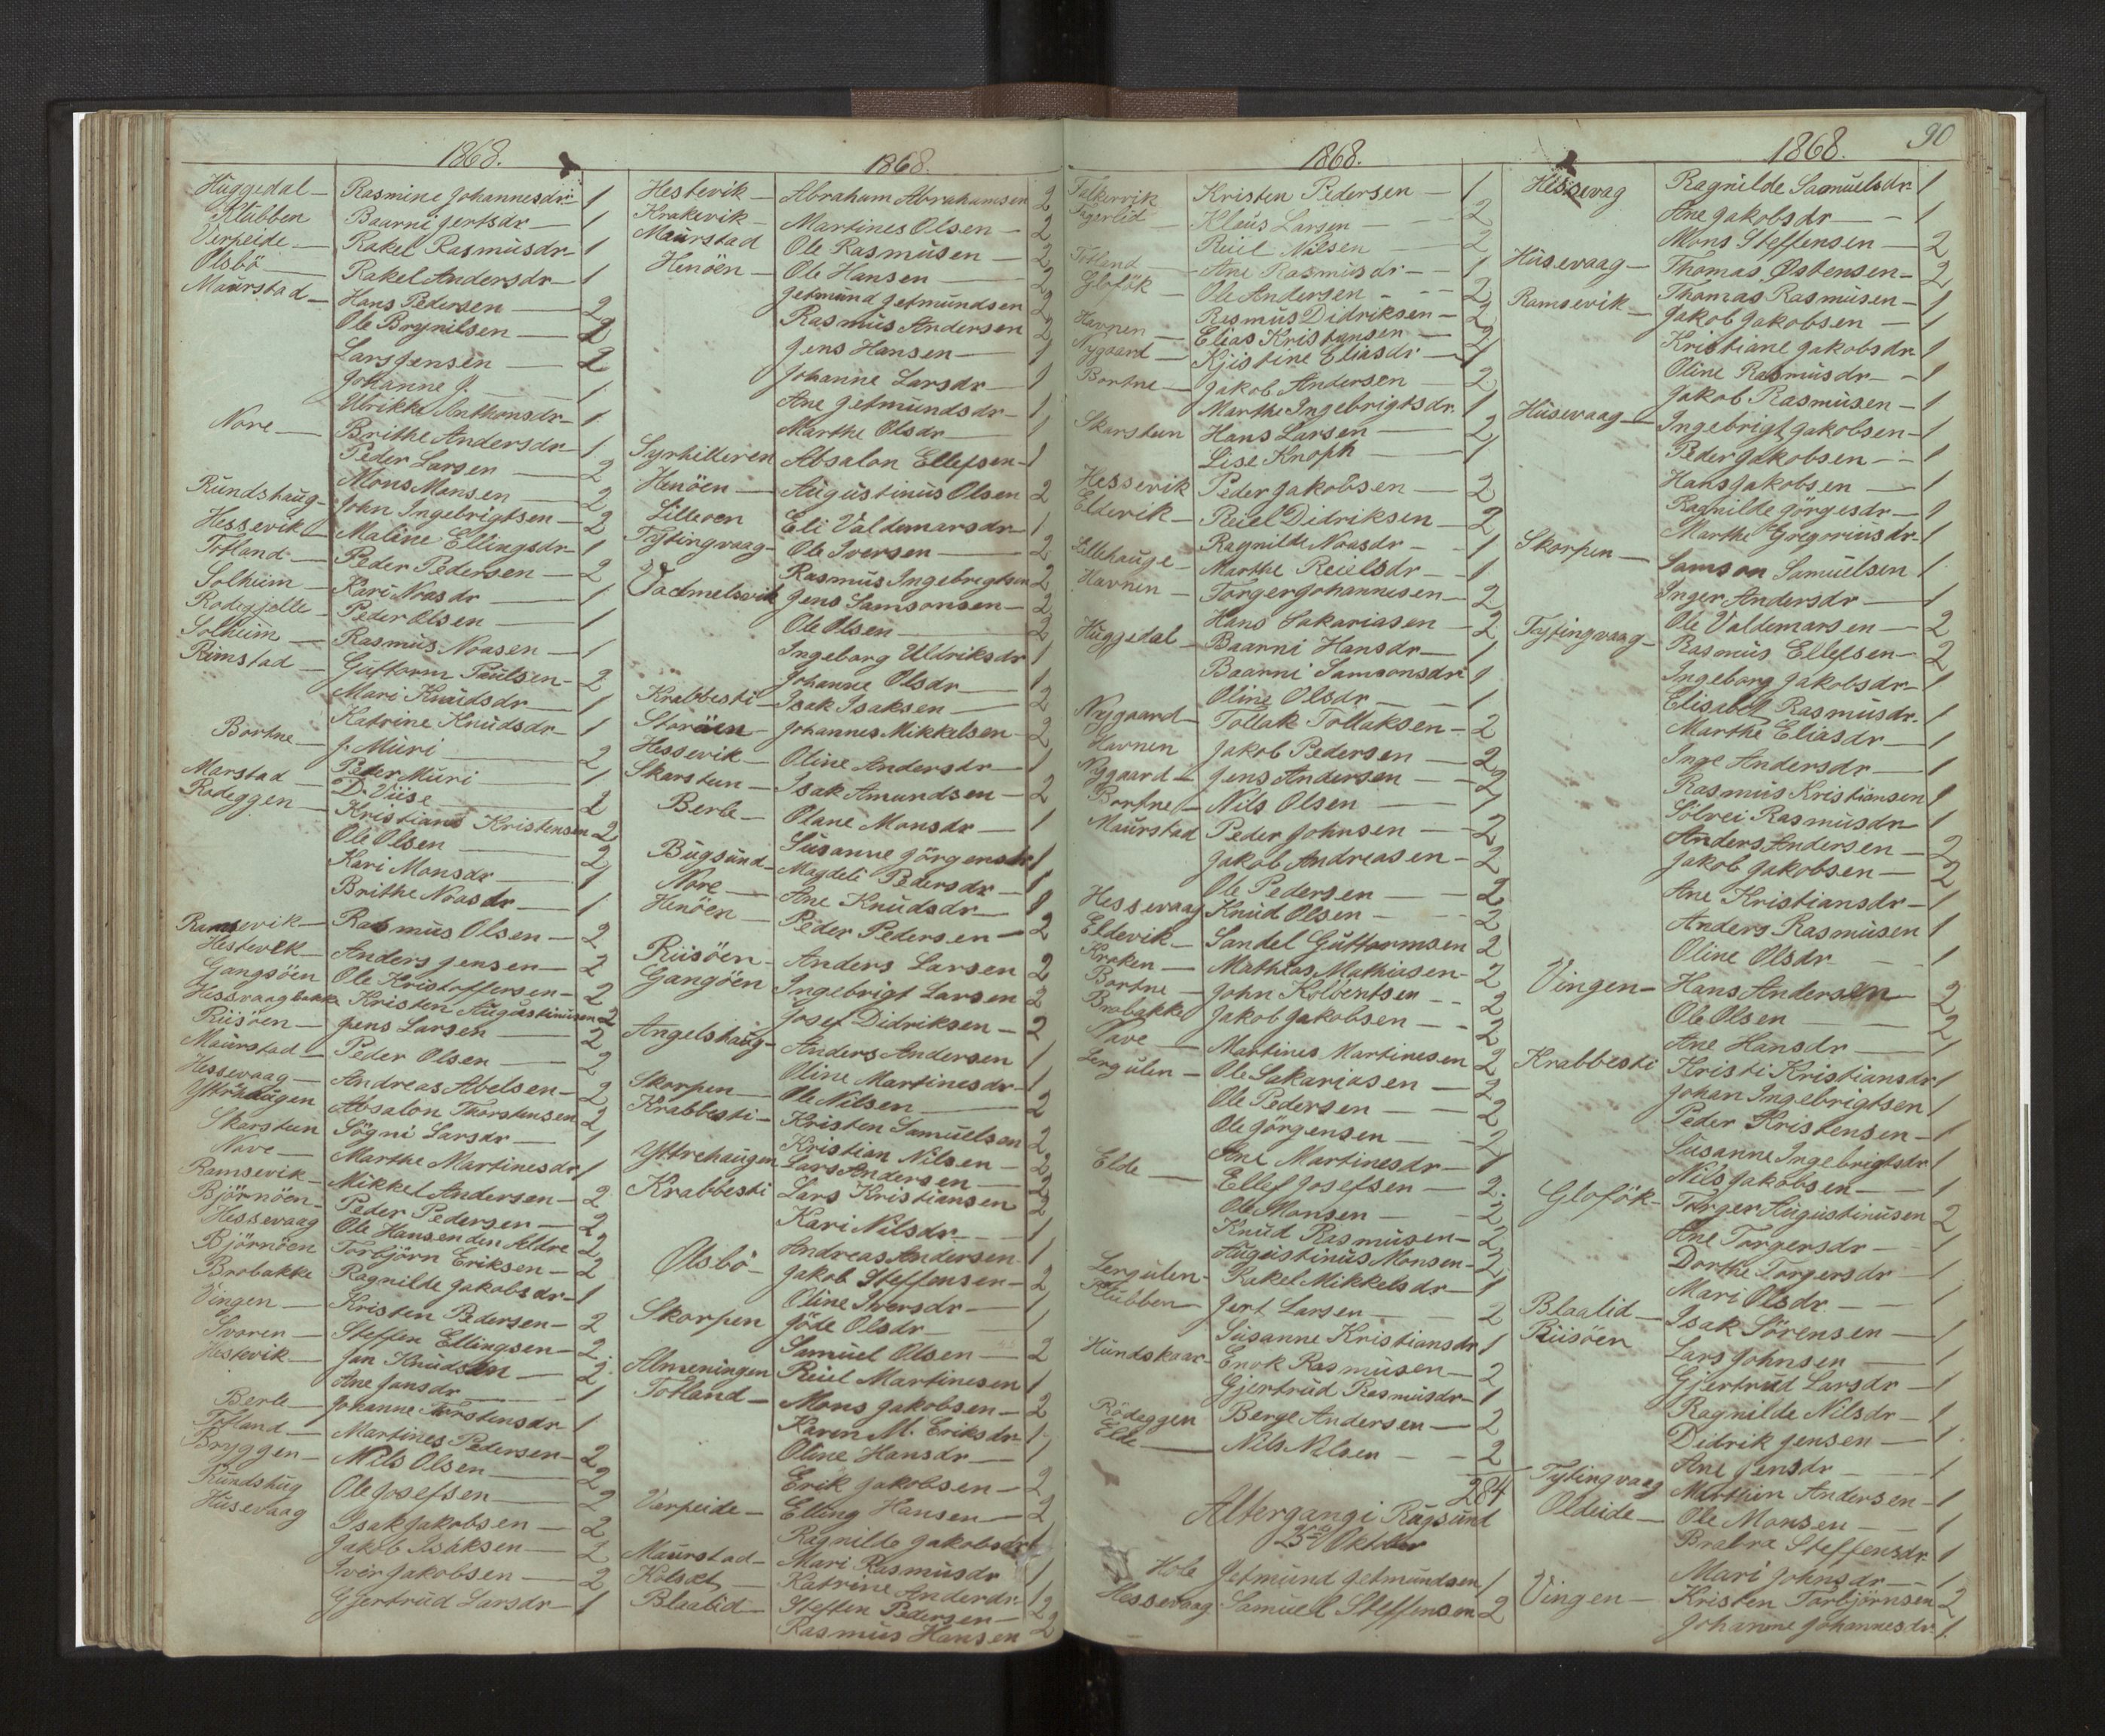 1868.
Huggedal — Rasmine Johannesdr — 1
Klubben Baarni Gertsdr — 1
Verpeide — Rakel Rasmusdr — 1
Olsbö — Rakel Andersdr — 1
Maurstad — Hans Pedersen — 2
Ole Brynilsen — 2
Lars Jensen — 2
Johanne J. — 1
Ulrikke Anthonsdr — 1
Nore — Brithe Andersdr — 1
Peder Larsen — 2
Mons Monsen — 2
Rundshaug — John Ingebrigtsen — 2
Hessevik Malene Ellingsdr — 1
Totland — Peder Pedersen — 2
Solheim — Kari Noasdr — 1
Rodegjelle — Peder Olsen — 1
Solheim — Rasmus Noasen — 1
Rimstad — Guttorm Paulsen — 2
Mari Knudsdr — 1
Katrine Knudsdr — 1
Bortne — J. Muri — 2
Peder Muri — 1
Marstad — D. Viise — 2
Rodeggen — Kristian Kristensen 2
Ole Olsen — 2
Kari Monsdr — 1
Brithe Noasdr — 1
Ramsevik — Rasmus Olsen — 2
Hestevek — Anders Jensen — 2
Gangsöen Ole Kristoffersen — 2
Hessvaagbakke Kristen Augustinusen 2
Riisöen — Jens Larsen — 2
Maurstad — Peder Olsen — 2
Hessevaag — Andreas Abelsen — 2
Yttrehaugen Absalon Thorstensen 2
Skarstun Sögni Larsdr — 1
Nave — Marthe Martinesdr 1
Ramsevik — Mikkel Andersen — 2
Björnöen — Peder Pedersen — 2
Hessevaag Ole Hansen den Ældre 2
Björnöen Torbjörn Eriksen — 2
Brobakke Ragnilde Jakobsdr — 1
Vingen — Kristen Pedersen — 2
Svoren — Steffen Ellingsen — 2
Hestevik — Jan Knudsen — 2
Ane Jansdr — 1
Berle — Johanne Torstensdr 1
Totland — Martines Pedersen — 2
Bryggen — Nils Olsen — 2
Rundshug Ole Josefsen — 2
Husevaag Isak Jakobsen — 2
Jakob Isaksen — 2
Iver Jakobsen — 2
Gjertrud Larsdr — 1
1868.
Hestevik — Abraham Abrahamsen 2
Krakevik — Martines Olsen — 2
Maurstad Ole Rasmusen — 2
Henöen — Ole Hansen — 2
Getmund Getmundsen 2
Rasmus Andersen 2
Jens Hansen — 1
Johanne Larsdr — 1
Ane Getmundsdr — 1
Marthe Olsdr — 1
Syrhilleren Absalon Ellefsen — 1
Henöen — Augustinus Olsen 2
Lilleöen Eli Valdemarsdr — 1
Tytingvaag — Ole Iversen — 2
Rasmus Ingebregtsen 2
Vadmelsvik Jens Samsonsen — 2
Ole Olsen — 2
Ingeborg Uldriksdr 1
Johanne Olsdr — 1
Krabbesti — Isak Isaksen — 2
Storöen — Johannes Mikkelsen — 2
Hessevik — Oline Andersdr — 1
Skarstun — Isak Amundsen — 2
Berle — Olane Monsdr — 1
Susanne Jörgensdr 1
Bugsund — Magdeli Pedersdr — 1
Nore — Ane Knudsdr — 1
Henöen — Peder Pedersen — 2
Riisöen — Anders Larsen 2
Gangöen Ingebrigt Larsen 2
Josef Didriksen — 2
Angelshaug — Anders Andersen 1
Oline Martinesdr — 1
Skorpen — Ole Nilsen — 2
Krabbesti — Kristen Samuelsen 2
Kristian Nilsen — 2
Yttrehaugen Lars Andersen — 2
Krabbesti Lars Kristiansen 2
Kari Nilsdr — 1
Andreas Andersen 1
Olsbö — Jakob Steffensen — 2
Oline Iversdr — 1
Skorpen Jöde Olsdr — 1
Samuel Olsen — 2
Almeningen Reiel Martinesen 1
Totland — Mons Jakobsen — 2
Karen M. Eriksdr — 1
Oline Hansdr — 1
Erik Jakobsen — 2
Verpeide — Elling Hansen — 2
Ragnilde Jakobsdr 1
Maurstad — Mari Rasmusdr 1
Kolset — Katrine Andersdr — 1
Blaalid — Steffen Pedersen — 2
Rasmus Hansen 2
1868.
Kristen Pedersen — 1
Fagerlid — Klaus Larsen — 2
Reiel Nilsen 2
Totland — Ane Rasmusdr — 1
Glofök — Ole Andersen — 2
Rasmus Didriksen — 2
Havnen — Elias Kristiansen — 2
Nygaard — Kjistine Eliasdr — 1
Bortne — Jakob Andersen — 2
Marthe Ingebrigtsdr 1
Skarstun Hans Larsen — 2
Lise Knoph — 1
Hessevik Peder Jakobsen — 2
Eldevik — Reiel Didriksen — 2
Ragnilde Noasdr — 1
Lillehauge — Marthe Reielsdr — 1
Havnen — Torger Johannesen — 2
Hans Sakariasen — 2
Huggedal — Baarni Hansdr — 1
Baarni Samsonsdr 1
Oline Olsdr — 1
Nygaard — Tollak Tollaksen — 2
Havnen Jakob Pedersen — 2
Nygaard — Jens Andersen — 2
Bortne — Nils Olsen — 1
Maurstad Peder Johnsen — 2
Jakob Andreasen — 2
Ole Pedersen — 2
Hessevaag Knud Olsen — 2
Eldevik — Sandel Guttormsen 2
Kroken — Mathias Mathiasen — 2
Bortne — John Kolbentsen — 2
Brobakke Jakob Jakobsen — 2
Nave — Martines Martinesen 2
Lergulen — Ole Sakariasen — 2
Ole Pedersen — 2
Ole Görgensen — 2
Ane Martinesdr — 1
Elde — Ellef Josefsen — 2
Ole Monsen — 2
Knud Rasmusen — 2
Augustinus Monsen — 2
Lergulen — Rakel Mikkelsdr — 1
Klubben — Gert Larsen — 2
Susanne Kristiansdr 1
Hundskaar — Enok Rasmusen — 2
Gjertrud Rasmusdr — 1
Rödeggen Berge Andersen — 2
Elde — Nils Nilsen — 2
284
Altergang i Rugsund
25de Oktober
Hole Getmund Getmundsen 1
Hessevaag Samuel Steffensen 2
1868. 90
Hessevaag Ragnilde Samuelsdr 1
Ane Jakobsdr — 1
Mons Steffensen — 2
Husevaag — Thomas Østensen — 2
Ramsevik — Thomas Rasmusen — 1
Jakob Jakobsen — 1
Kristiane Jakobsdr 1
Oline Rasmusdr — 1
Jakob Rasmusen — 1
Husevaag — Ingebrigt Jakobsen — 1
Peder Jakobsen — 1
Hans Jakobsen — 1
Ragnilde Görgesdr — 1
Marthe Gregoriusdr — 1
Skorpen — Samson Samuelsen 1
Inger Andersdr — 1
Ole Valdemarsen — 2
Tytingvaag — Rasmus Ellefsen — 2
Ingeborg Jakobsdr — 1
Elisabet Rasmusdr. 1
Marthe Eliasdr — 1
Inge Andersdr — 1
Rasmus Kristiansen 1
Sölvei Rasmusdr — 1
Anders Andersen — 2
Jakob Jakobsen — 2
Ane Kristiansdr — 1
Anders Rasmusen 1
Oline Olsdr — 1
Vingen — Hans Andersen 2
Ole Olsen — 2
Ane Hansdr — 1
Krabbesti Kristi Kristiansdr 1
Johan Ingebrigtsen 1
Peder Kristensen — 1
Susanne Ingebrigtsdr 1
Nils Jakobsen — 1
Glofök — Torger Augustinusen 2
Ane Torgersdr — 1
Dorthe Torgersdr — 1
Mari Olsdr — 1
Blaalid — Isak Sörensen — 1
Riisöen Lars Johnsen — 1
Gjertrud Larsdr — 1
Ragnilde Nilsdr — 1
Didrik Jensen — 1
Ane Jensdr — 1
Tytingvaag Andersen — 1
Oldeide — Ole Monsen — 1
Brabra Steffensdr 1
Mari Johnsdr — 1
Vingen — Kristen Torbjörnsen 2
Johanne Johannesdr 1.